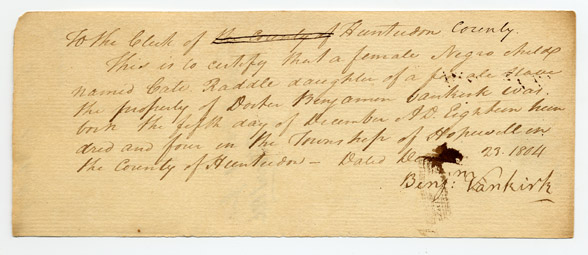 To the Clerk of the County of Hunterdon County.
This is to certify that a female Negro child
named Cate Raddle daughter of a female slave
the property of Docter Benjamen Vankirk was
born the fifth day of December A.D. Eighteen hun
dred and four in the Township of Hopewell in
the County of Hunterdon — Dated 23. 1804
Benjm: Vankirk